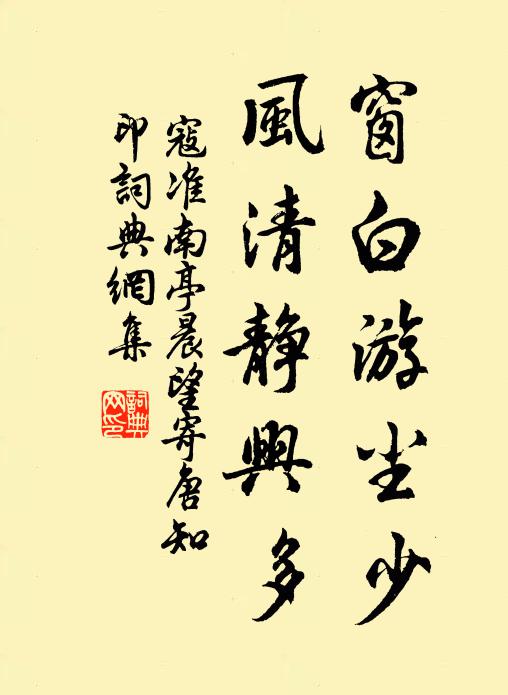 窗白游尘少
風清静興多
寇准南亭晨望寄唐知
印詞典網集
詞典
网印